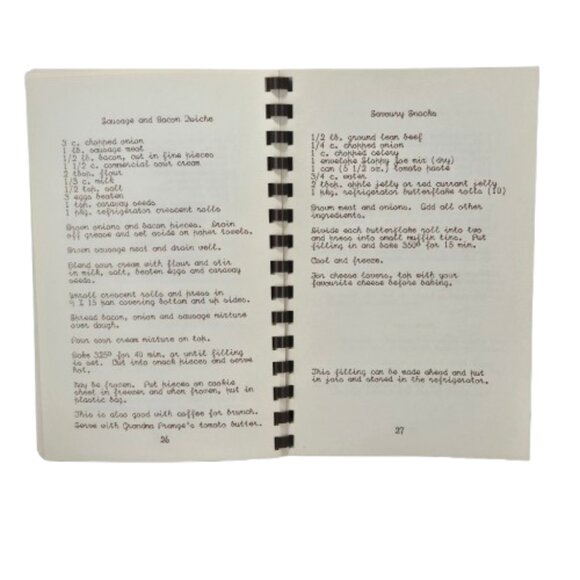 Sausage and Bacon Quiche
3 c. chopped onion
1 lb. sausage meat
1/2 lb. bacon, cut in fine pieces
1 1/2 c. commercial sour cream
2 tbsp. flour
1/3 c. milk
1/2 tsp. salt
3 eggs beaten
1 tsp. caraway seeds
1 pkg. refrigerator crescent rolls
Brown onions and bacon pieces. Drain
off grease and set aside on paper towels.
Brown sausage meat and drain well.
Blend sour cream with flour and stir
in milk, salt, beaten eggs and caraway
seeds.
Unroll crescent rolls and press in
9 X 13 pan covering bottom and up sides.
Spread bacon, onion and sausage mixture
over dough.
Pour sour cream mixture on top.
Bake 325º for 40 min. or until filling
is set. Cut into snack pieces and serve
hot.
May be frozen. Put pieces on cookie
sheet in freezer and when frozen, put in
plastic bag.
This is also good with coffee for brunch.
Serve with Grandma Prange's tomato butter.
26
Savoury Snacks
1/2 lb. ground lean beef
1/4 c. chopped onion
1 c. chopped celery
1 envelope Sloppy Joe mix (dry)
1 can (5 1/2 oz.) tomato paste
3/4 c. water
2 tbsp. apple jelly or red currant jelly
1 pkg. refrigerator butterflake rolls (10)
Brown meat and onions. Add all other
ingredients.
Divide each butterflake roll into two
and press into small muffin tins. Put
filling in and bake 350º for 15 min.
Cool and freeze.
For cheese lovers, top with your
favourite cheese before baking.
This filling can be made ahead and put
in jars and stored in the refrigerator.
27